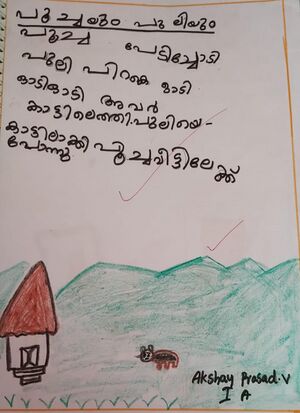 പൂച്ചയും പുലിയും
പൂച്ച പേടിച്ചോടി
പുലി പിറകെ ഓടി
ഓടിഓടി അവർ
കാട്ടിലെത്തി.പുലിയെ-
കാട്ടിലാക്കി പൂച്ചവീട്ടിലേക്ക്
പോന്നു.
Akshay Prasad.V
I A